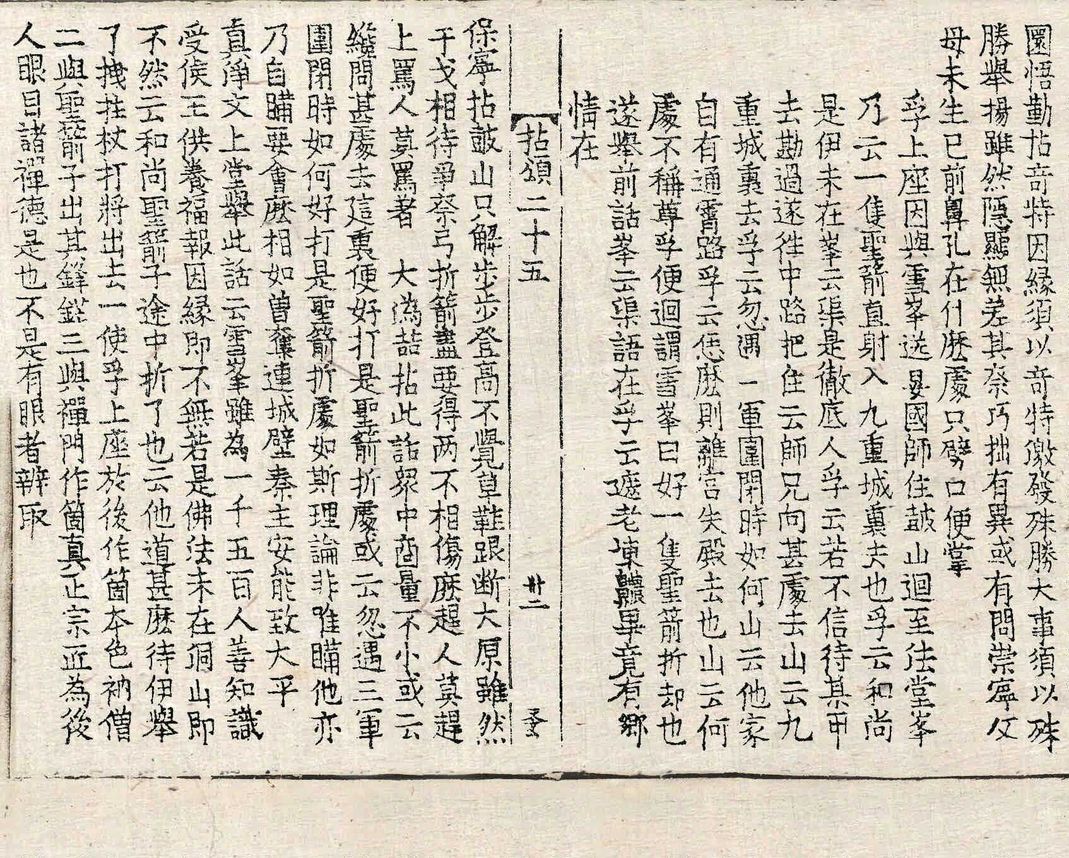 圜悟勤拈奇特因縁須以奇特激發殊勝大事須以殊
勝舉揚雖然隱顯無差其奈巧拙有異或有問崇寧父
母未生已前鼻孔在什麽處只劈口便掌
孚上座因與雪峯送晏國師住鼓山迴至法堂峯
乃云一隻聖箭直射入九重城裏去也孚云和尚
是伊未在峯云渠是徹底人孚云若不信待某甲
去勘過遂徃中路把住云師兄向甚處去山云九
重城裏去孚云忽遇一軍圍閉時如何山云他家
自有通霄路孚云恁麽則離宫失殿去也山云何
處不稱尊孚便迴謂雪峯曰好一隻聖箭折却也
遂舉前話峯云渠語在孚云遮老凍齈畢竟有鄉
情在
拈頌二十五 廿二
保寧拈鼓山只解步步登高不覺草鞋跟断大原雖然
干戈相待爭奈弓折箭盡要得两不相傷麽趕人莫趕
上罵人莫罵著 大溈喆拈此話衆中啇量不小或云
纔問甚處去這裏便好打是聖箭折處或云忽遇三軍
圍閉時如何好打是聖箭折處如斯理論非唯瞞他亦
乃自瞞要會麽相如曾奪連城壁秦主安能致大平
真淨文上堂舉此話云雪峯雖為一千五百人善知識
受侯王供養福報因縁即不無若是佛法未在洞山即
不然云和尚聖箭子途中折了也云他道甚麽待伊舉
了拽拄杖打將出去一使孚上座於後作箇本色衲僧
二與聖箭子出其鋒鋩三與禪門作箇真正宗匠為後
人眼目諸禪德是也不是有眼者辨取